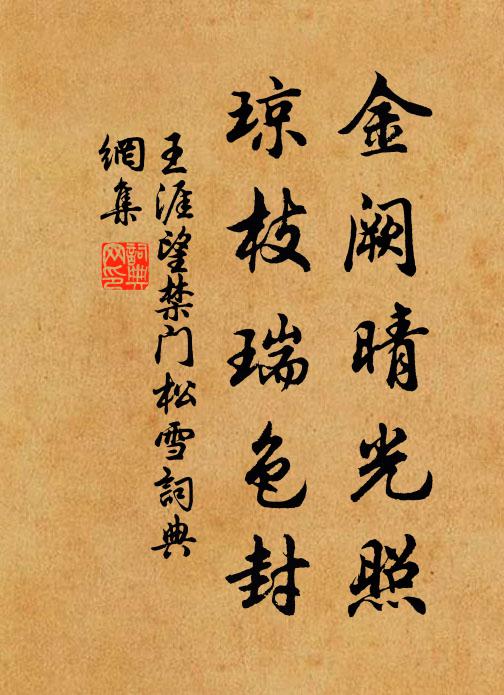 金阙晴光照
琼枝瑞色封
王涯望禁门松雪詞典
網集
詞典
网印